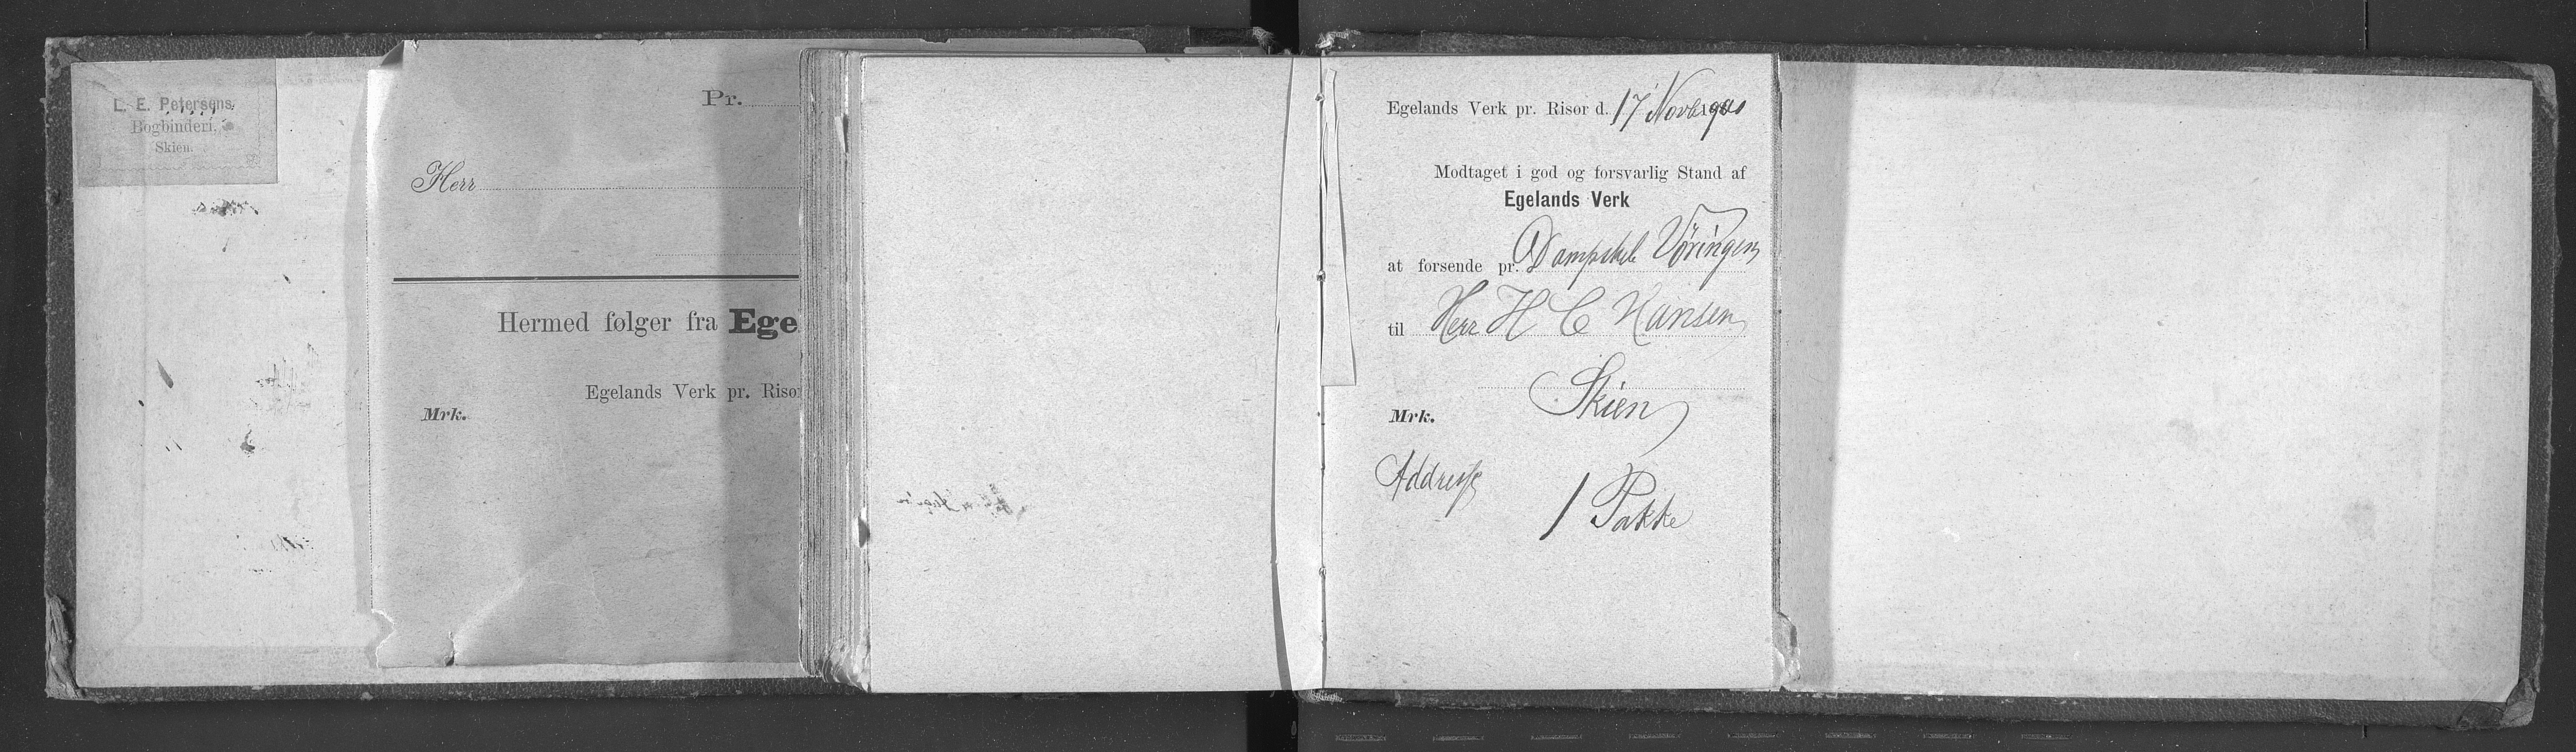 L. E. Petersens
Bogbinderi,
Skien.
Pr.
Herr
Hermed følger fra Ege
Egelands Verk pr. Risør
Mrk.
Egelands Verk pr. Risør d. 17 Novb
Modtaget i god og forsvarlig Stand af
Egelands Verk
at forsende pr. Dampskib Vöringen
til Herr H C Hansen
Skien
Mrk.
Addresse
1 Pakke